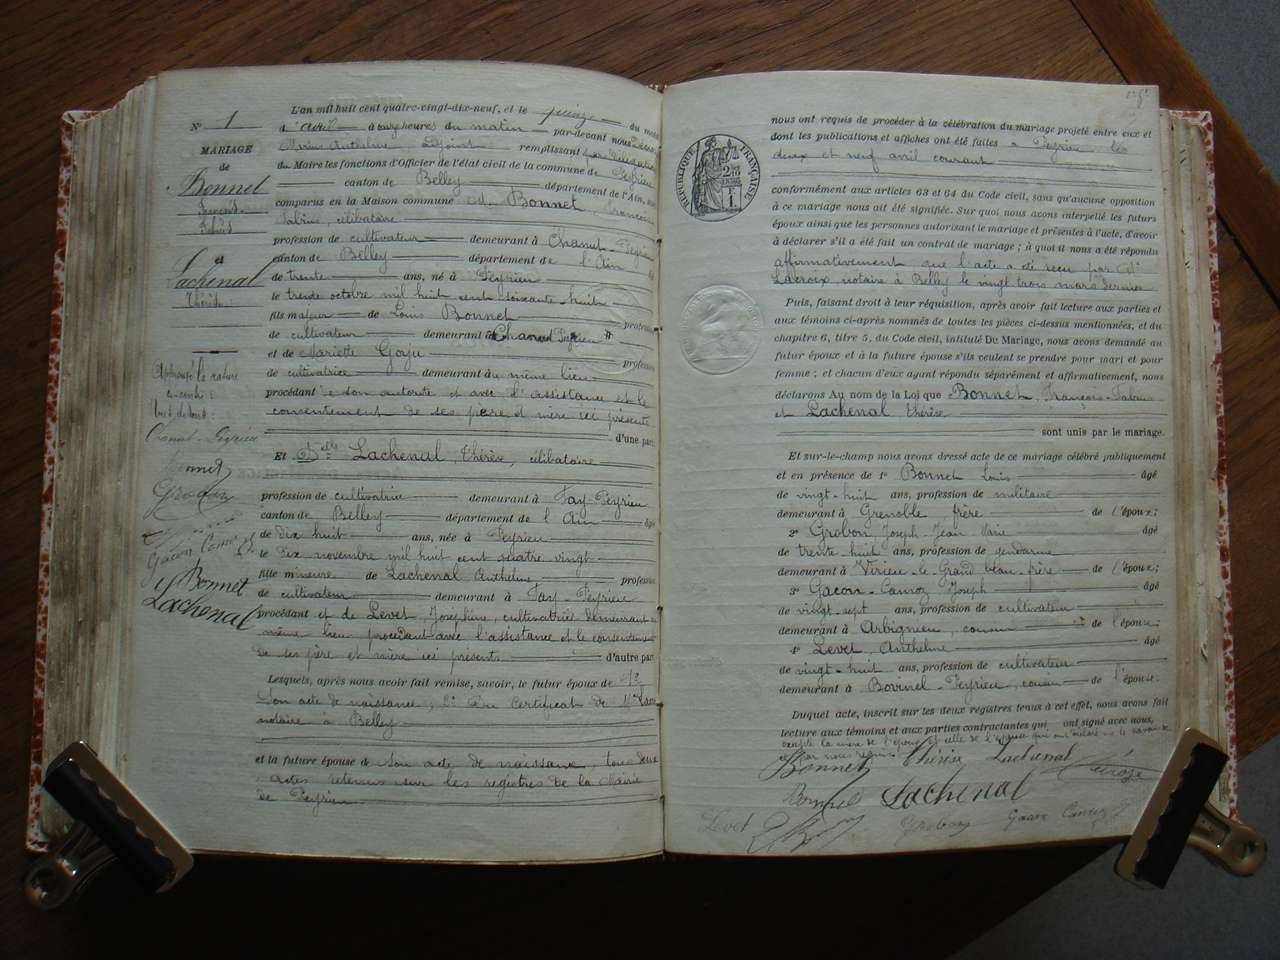 N° 1
MARIAGE
de
Bonnet
François
Fabius
et
Lachenal
Thérèse
Chanut-Peyrieu
Bonnet
Grobon
Gacon Camoz
Bonnet
Lachenal
L'an mil huit cent quatre-vingt-dix-neuf, et le quinze du mois
d'avril à onze heures du matin par-devant nous
Marius Anthelme, adjoint remplissant par délégation
du Maire les fonctions d'Officier de l'état civil de la commune de Peyrieu
canton de Belley département de l'Ain, sont
comparus en la Maison commune Bonnet, François
Fabius, célibataire
profession de cultivateur demeurant à Chanut-Peyrieu
canton de Belley département de l'Ain âgé
de trente ans, né à Peyrieu
le trente octobre mil huit cent soixante huit
fils majeur de Louis Bonnet profession
de cultivateur demeurant à Chanut Peyrieu #
et de Mariette Goju profession
de cultivatrice demeurant au même lieu
procédant de son autorité et avec l'assistance et le
consentement de ses père et mère ici présents
d'une part
Et Delle Lachenal, Thérèse, célibataire
profession de cultivatrice demeurant à Fay-Peyrieu
canton de Belley département de l'Ain âgée
de dix huit ans, née à Peyrieu
le dix novembre mil huit cent quatre vingt
fille mineure de Lachenal Anthelme profession
de cultivateur demeurant à Fay-Peyrieu
procédant et de Levet, Joséphine, cultivatrice demeurant au
même lieu procédant avec l'assistance et le consentement
de ses père et mère ici présents d'autre part
Lesquels, après nous avoir fait remise, savoir, le futur époux de 1°
Son acte de naissance, 2° d'un certificat de Me Lacroix
notaire à Belley
et la future épouse de Son acte de naissance, tous deux
actes retenus sur les registres de la Mairie
de Peyrieu
RÉPUBLIQUE FRANÇAISE
nous ont requis de procéder à la célébration du mariage projeté entre eux et
dont les publications et affiches ont été faites à Peyrieu les
deux et neuf avril courant
conformément aux articles 63 et 64 du Code civil, sans qu'aucune opposition
à ce mariage nous ait été signifiée. Sur quoi nous avons interpellé les futurs
époux ainsi que les personnes autorisant le mariage et présentes à l'acte, d'avoir
à déclarer s'il a été fait un contrat de mariage ; à quoi il nous a été répondu
affirmativement que l'acte a été reçu par Me
Lacroix, notaire à Belley le vingt trois mars dernier
Puis, faisant droit à leur réquisition, après avoir fait lecture aux parties et
aux témoins ci-après nommés de toutes les pièces ci-dessus mentionnées, et du
chapitre 6, titre 5, du Code civil, intitulé Du Mariage, nous avons demandé au
futur époux et à la future épouse s'ils veulent se prendre pour mari et pour
femme ; et chacun d'eux ayant répondu séparément et affirmativement, nous
déclarons Au nom de la Loi que Bonnet, François-Fabius
et Lachenal Thérèse
sont unis par le mariage.
Et sur-le-champ nous avons dressé acte de ce mariage célébré publiquement
et en présence de 1° Bonnet Louis âgé
de vingt-huit ans, profession de militaire
demeurant à Grenoble frère de l'époux;
2° Grobon, Joseph Jean Marie âgé
de trente huit ans, profession de gendarme
demeurant à Virieu-le-Grand beau-frère de l'époux;
3° Gacon-Camoz Joseph âgé
de vingt-sept ans, profession de cultivateur
demeurant à Arbignieu, cousin de l'épouse;
4° Levet, Anthelme âgé
de vingt-huit ans, profession de cultivateur
demeurant à Bovinel-Peyrieu, cousin de l'épouse.
Duquel acte, inscrit sur les deux registres tenus à cet effet, nous avons fait
lecture aux témoins et aux parties contractantes qui ont signé avec nous,
excepté la mère de l'époux et celle de l'épouse qui ont déclaré ne le savoir de
Bonnet Thérèse Lachenal
Bonnet Lachenal
Levet Grobon Gacon Camoz